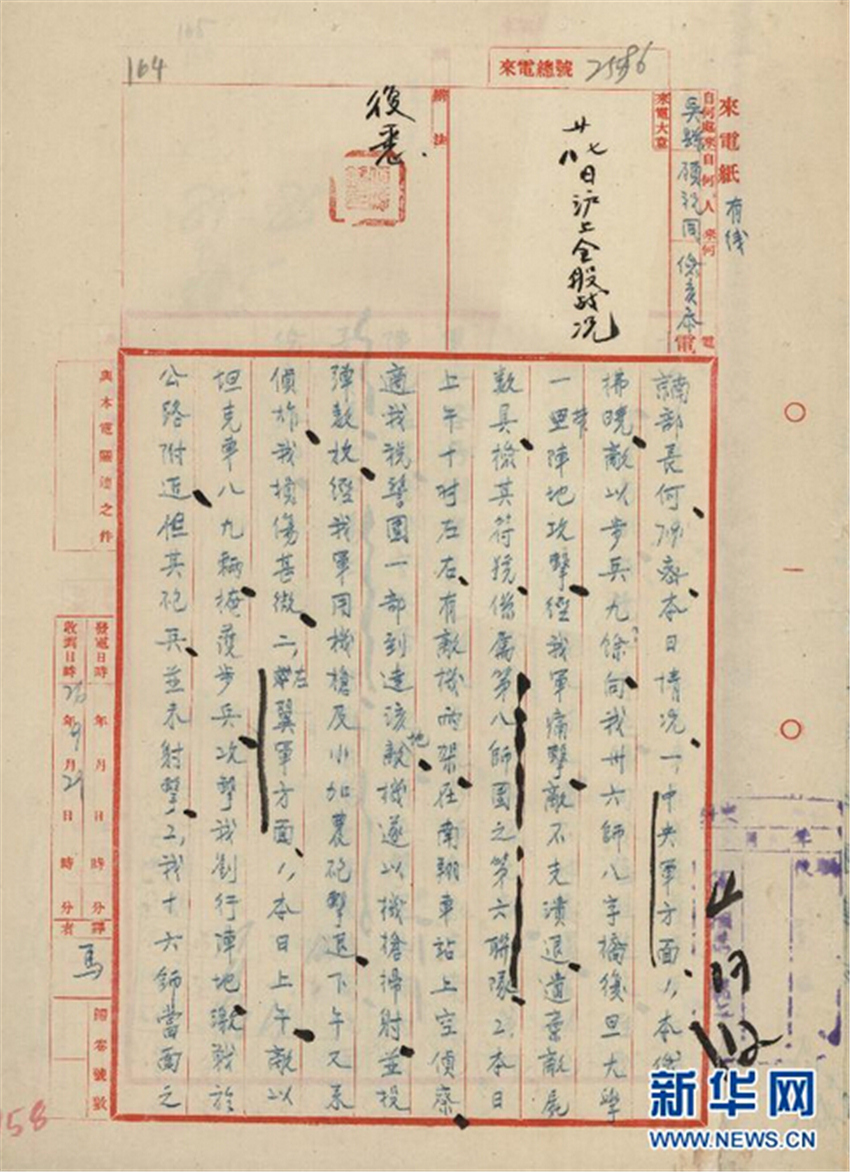 164
來電總號 2586
來電紙
有线
自何處來
自何人來
何電
吳縣顧祝同
來電大意
廿七八日沪上全般战况
辦法
復悉.
南京部長何 本日情况一,中央軍方面1,本
拂曉敵以步兵九餘向我卅六師八字橋復旦大學
一帶陣地攻擊經我軍痛擊敵不支潰退遺棄敵屍
数具檢其符號係屬第八師團之第六聯隊2.本日
上午十时左右有敵機两架在南翔車站上空偵察
適我税警團一部到達該地敵機遂以機槍掃射並投
弹数枚經我軍用機槍及小加農砲擊退下午又来
偵炸我損傷甚微二,左翼軍方面1,本日上午敵以
坦克車八九輛掩護步兵攻擊我劉行陣地激戰於
公路附近但其砲兵並未射擊2,我十六師當面之
與本電關連之件
發電日時 年 月 日 時 分
收到日時 26年9月29日 時 分
譯者 馬
歸卷號數
〇一〇
58
新华网
WWW.NEWS.CN